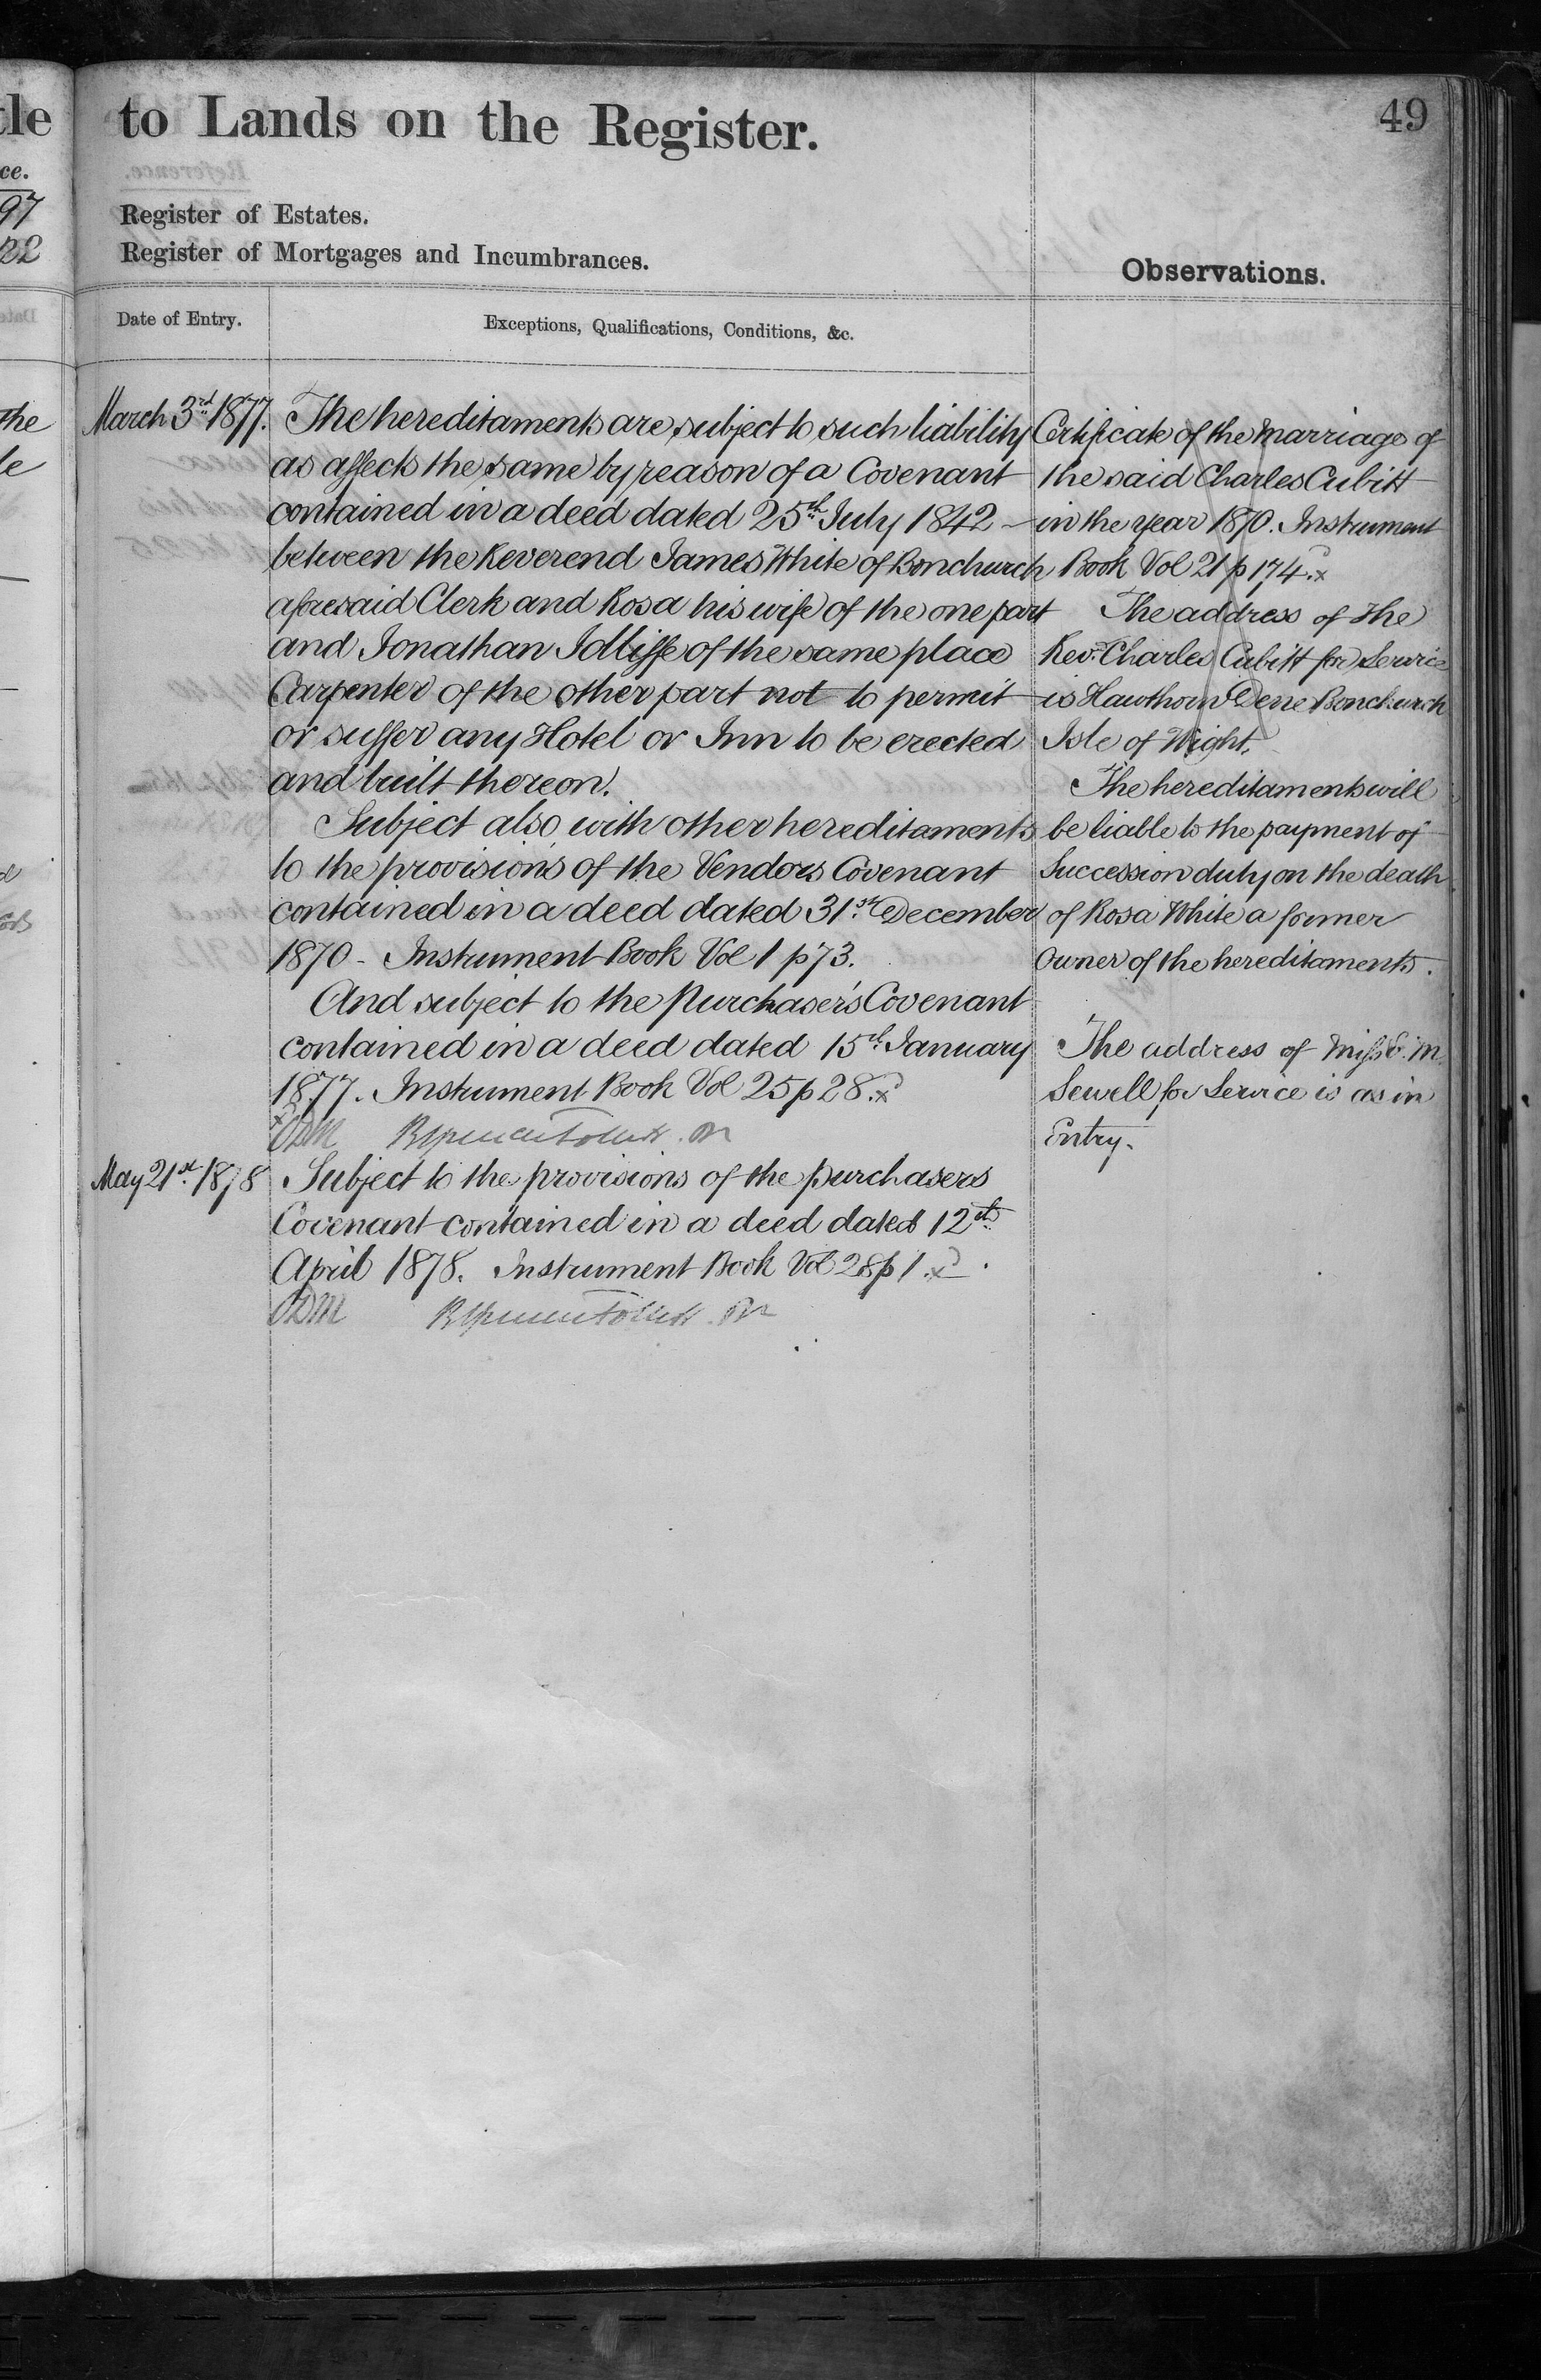 tle
to Lands on the Register.
49
ce.
97
Register of Estates.
32
Register of Mortgages and Incumbrances.
Observations.
Date of Entry.
Exceptions, Qualifications, Conditions, &c.
the
le
March 3rd 1877.
The hereditaments are subject to such liability
as affects the same by reason of a Covenant
contained in a deed dated 25th July 1842
between the Reverend James White of Bonchurch
aforesaid Clerk and Rosa his wife of the one part
and Jonathan Jolliffe of the same place
Carpenter of the other part not to permit
or suffer any Hotel or Inn to be erected
and built thereon.
Subject also with other hereditaments
to the provisions of the Vendors Covenant
contained in a deed dated 31st December
1870 - Instrument Book Vol 1 p 73.
And subject to the Purchaser's Covenant
contained in a deed dated 15th January
1877. Instrument Book Vol 25 p 28. x
May 21st 1878
Subject to the provisions of the purchasers
Covenant contained in a deed dated 12th
April 1878. Instrument Book Vol 28 p 1. x
Certificate of the Marriage of
the said Charles Cubitt
in the year 1870. Instrument
Book Vol 21 p 174. x
The address of the
Rev. Charles Cubitt for Service
is Hawthorn Dene Bonchurch
Isle of Wight.
The hereditaments will
be liable to the payment of
Succession duty on the death
of Rosa White a former
Owner of the hereditaments.
The address of Miss E. M.
Sewell for Service is as in
Entry.